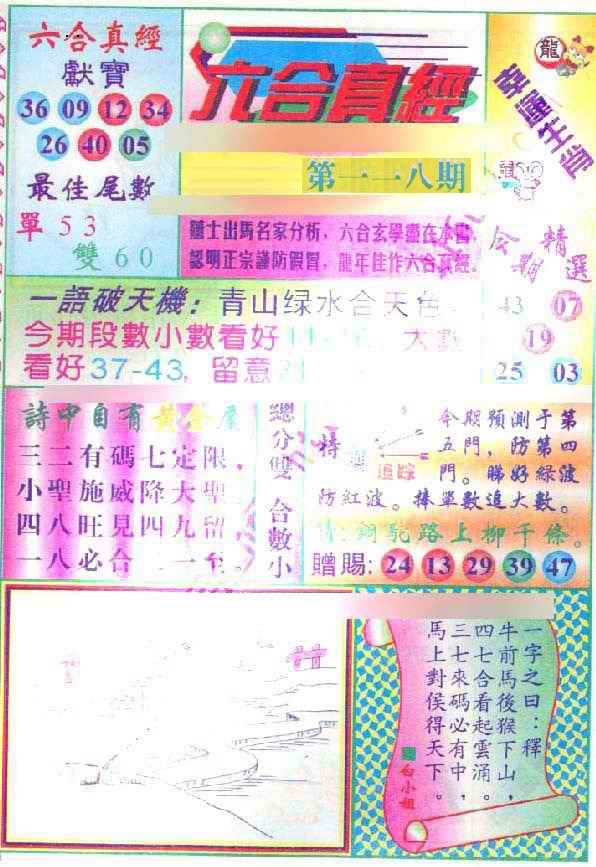 六合真經
獻寶
36 09 12 34
26 40 05
最佳尾數
單 5 3
雙 6 0
六合真經
第一一八期
龍
鼠
幸運生肖
精選
43 07
19
25 03
贈士出馬名家分析，六合玄學盡在本書，
認明正宗謹防假冒，龍年佳作六合真經。
一語破天機：青山绿水合天色
今期段數小數看好
大數
看好37-43，留意
詩中自有黃金屋
三二有碼七定限。
小聖施威降大聖
四八旺見四九留
一八必合二一至。
總分雙
合數小
特
追踪
今期預測于第
五門，防第四
門。睇好綠波
防紅波。捧單數追大數。
銅駝路上柳千條。
贈賜：24 13 29 39 47
一字之曰：釋
牛前馬後猴下山，
四七合看起雲涌。
三七來碼必有中，
馬上對侯得天下。
白小姐